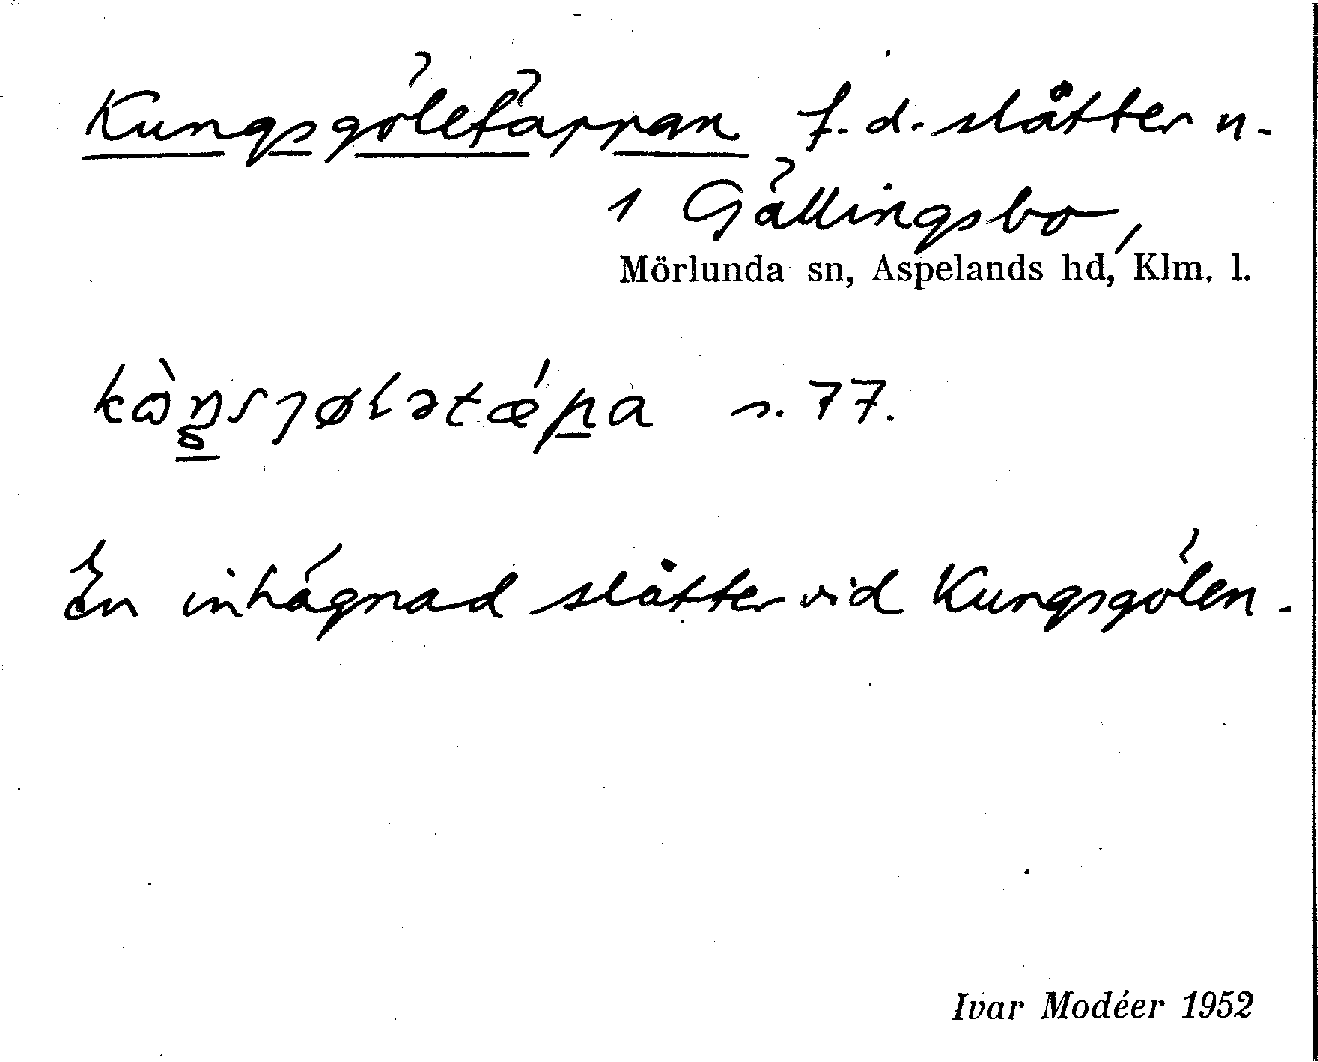 Kungsgöletäppan f.d. slåtter n.
1 Gällingsbo,
Mörlunda sn, Aspelands hd, Klm. l.
s. 77.
En inhägnad slåtter vid Kungsgölen.
Ivar Modéer 1952